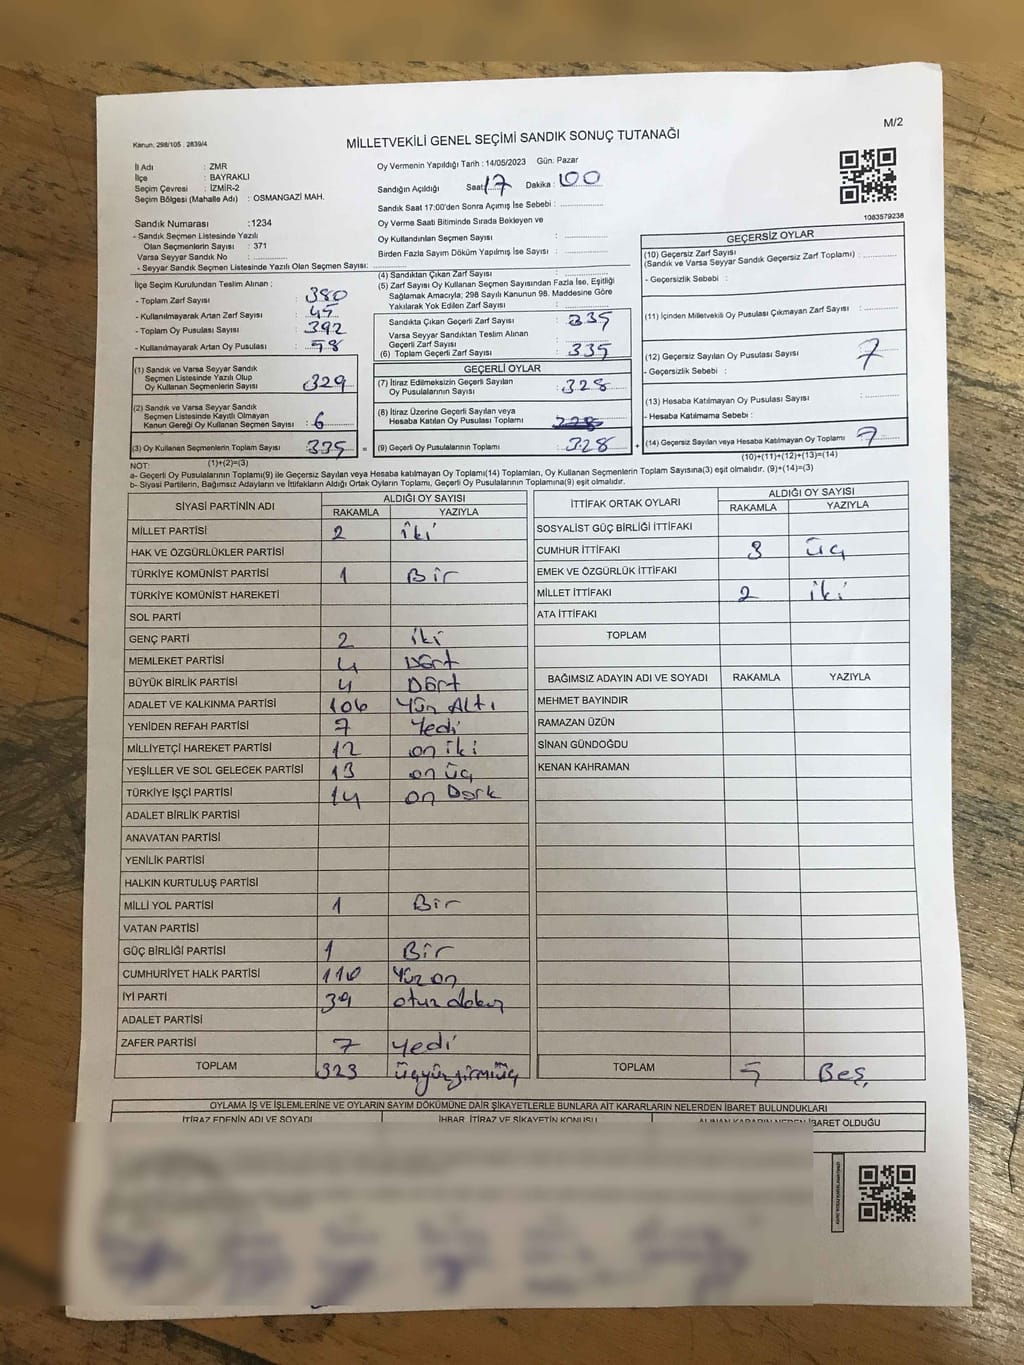 M/2
Kanun: 298/105 , 2839/4
MİLLETVEKİLİ GENEL SEÇİMİ SANDIK SONUÇ TUTANAĞI
İl Adı : ZMR
İlçe : BAYRAKLI
Seçim Çevresi : İZMİR-2
Seçim Bölgesi (Mahalle Adı) : OSMANGAZİ MAH.
Oy Vermenin Yapıldığı Tarih : 14/05/2023 Gün: Pazar
Sandığın Açıldığı Saat 17 Dakika : 00
Sandık Saat 17:00'den Sonra Açımış İse Sebebi :
Sandık Numarası :1234
- Sandık Seçmen Listesinde Yazılı
Olan Seçmenlerin Sayısı : 371
Varsa Seyyar Sandık No :
- Seyyar Sandık Seçmen Listesinde Yazılı Olan Seçmen Sayısı:
Oy Verme Saati Bitiminde Sırada Bekleyen ve
Oy Kullandırılan Seçmen Sayısı :
Birden Fazla Sayım Döküm Yapılmış İse Sayısı :
1083579238
İlçe Seçim Kurulundan Teslim Alınan ;
- Toplam Zarf Sayısı : 380
- Kullanılmayarak Artan Zarf Sayısı : 45
- Toplam Oy Pusulası Sayısı : 392
- Kullanılmayarak Artan Oy Pusulası : 58
(1) Sandık ve Varsa Seyyar Sandık
Seçmen Listesinde Yazılı Olup
Oy Kullanan Seçmenlerin Sayısı : 329
(2) Sandık ve Varsa Seyyar Sandık
Seçmen Listesinde Kayıtlı Olmayan
Kanun Gereği Oy Kullanan Seçmen Sayısı : 6
(3) Oy Kullanan Seçmenlerin Toplam Sayısı : 335 =
(1)+(2)=(3)
(4) Sandıktan Çıkan Zarf Sayısı :
(5) Zarf Sayısı Oy Kullanan Seçmen Sayısından Fazla İse, Eşitliği
Sağlamak Amacıyla; 298 Sayılı Kanunun 98. Maddesine Göre
Yakılarak Yok Edilen Zarf Sayısı :
Sandıkta Çıkan Geçerli Zarf Sayısı : 335
Varsa Seyyar Sandıktan Teslim Alınan
Geçerli Zarf Sayısı :
(6) Toplam Geçerli Zarf Sayısı : 335
GEÇERLİ OYLAR
(7) İtiraz Edilmeksizin Geçerli Sayılan
Oy Pusulalarının Sayısı : 328
(8) İtiraz Üzerine Geçerli Sayılan veya
Hesaba Katılan Oy Pusulası Toplamı :
(9) Geçerli Oy Pusulalarının Toplamı : 328 +
GEÇERSİZ OYLAR
(10) Geçersiz Zarf Sayısı
(Sandık ve Varsa Seyyar Sandık Geçersiz Zarf Toplamı) :
- Geçersizlik Sebebi :
(11) İçinden Milletvekili Oy Pusulası Çıkmayan Zarf Sayısı :
(12) Geçersiz Sayılan Oy Pusulası Sayısı : 7
- Geçersizlik Sebebi :
(13) Hesaba Katılmayan Oy Pusulası Sayısı :
- Hesaba Katılmama Sebebi :
(14) Geçersiz Sayılan veya Hesaba Katılmayan Oy Toplamı : 7
(10)+(11)+(12)+(13)=(14)
NOT:
a- Geçerli Oy Pusulalarının Toplamı(9) ile Geçersiz Sayılan veya Hesaba katılmayan Oy Toplamı(14) Toplamları, Oy Kullanan Seçmenlerin Toplam Sayısına(3) eşit olmalıdır. (9)+(14)=(3)
b- Siyasi Partilerin, Bağımsız Adayların ve İttifakların Aldığı Ortak Oyların Toplamı, Geçerli Oy Pusulalarının Toplamına(9) eşit olmalıdır.
SİYASİ PARTİNİN ADI ALDIĞI OY SAYISI
RAKAMLA YAZIYLA
MİLLET PARTİSİ 2 iki
HAK VE ÖZGÜRLÜKLER PARTİSİ
TÜRKİYE KOMÜNİST PARTİSİ 1 Bir
TÜRKİYE KOMÜNİST HAREKETİ
SOL PARTİ
GENÇ PARTİ 2 iki
MEMLEKET PARTİSİ 4 Dört
BÜYÜK BİRLİK PARTİSİ 4 Dört
ADALET VE KALKINMA PARTİSİ 106 Yüz Altı
YENİDEN REFAH PARTİSİ 7 Yedi
MİLLİYETÇİ HAREKET PARTİSİ 12 on iki
YEŞİLLER VE SOL GELECEK PARTİSİ 13 on üç
TÜRKİYE İŞÇİ PARTİSİ 14 on Dört
ADALET BİRLİK PARTİSİ
ANAVATAN PARTİSİ
YENİLİK PARTİSİ
HALKIN KURTULUŞ PARTİSİ
MİLLİ YOL PARTİSİ 1 Bir
VATAN PARTİSİ
GÜÇ BİRLİĞİ PARTİSİ 1 Bir
CUMHURİYET HALK PARTİSİ 110 Yüz on
İYİ PARTİ 39 otuz dokuz
ADALET PARTİSİ
ZAFER PARTİSİ 7 yedi
TOPLAM 323 üçyüzyirmiüç
İTTİFAK ORTAK OYLARI ALDIĞI OY SAYISI
RAKAMLA YAZIYLA
SOSYALİST GÜÇ BİRLİĞİ İTTİFAKI
CUMHUR İTTİFAKI 3 üç
EMEK VE ÖZGÜRLÜK İTTİFAKI
MİLLET İTTİFAKI 2 iki
ATA İTTİFAKI
TOPLAM
BAĞIMSIZ ADAYIN ADI VE SOYADI RAKAMLA YAZIYLA
MEHMET BAYINDIR
RAMAZAN ÜZÜN
SİNAN GÜNDOĞDU
KENAN KAHRAMAN
TOPLAM 5 Beş
OYLAMA İŞ VE İŞLEMLERİNE VE OYLARIN SAYIM DÖKÜMÜNE DAİR ŞİKAYETLERLE BUNLARA AİT KARARLARIN NELERDEN İBARET BULUNDUKLARI
İTİRAZ EDENİN ADI VE SOYADI İHBAR, İTİRAZ VE ŞİKAYETİN KONUSU ALINAN KARARIN NEDEN İBARET OLDUĞU